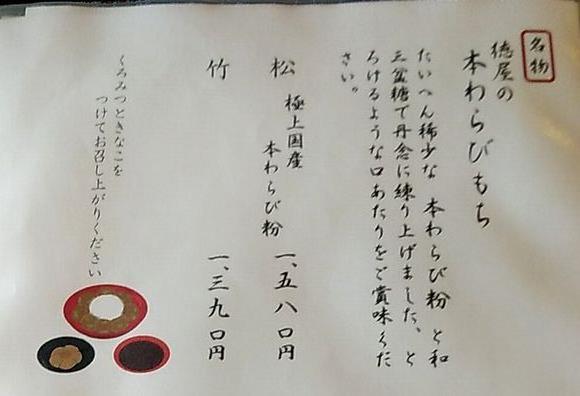 名物
徳屋の
本わらびもち
たいへん稀少な 本わらび粉 と和
三盆糖で丹念に練り上げました、と
ろけるような口あたりをご賞味くだ
さい。
松 極上国産
本わらび粉 一、五八〇円
竹 一、三九〇円
くろみつときなこを
つけてお召し上がりください